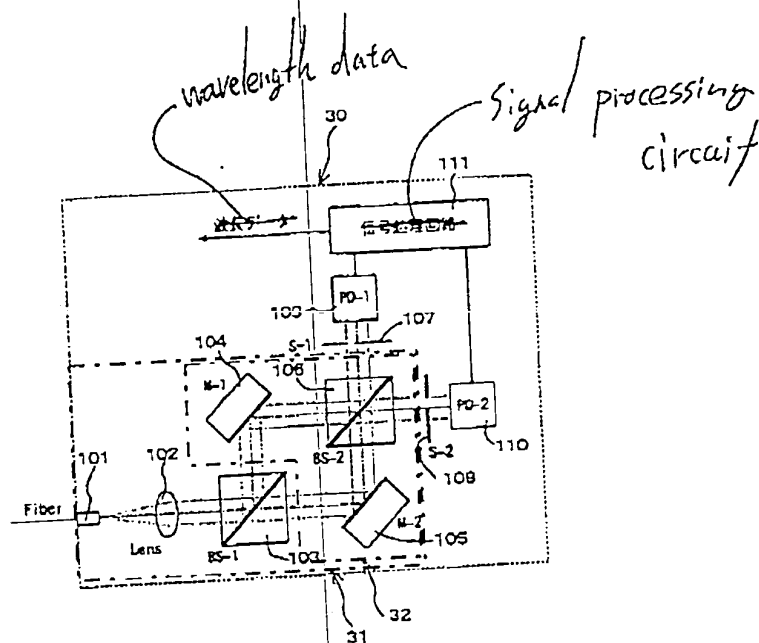 wavelength data
Signal processing
circuit
30
111
信号処理回路
PD-1
107
S-1
104
M-1
106
PD-2
BS-2
S-2
110
101
102
Fiber
Lens
BS-1
103
M-2
105
32
31